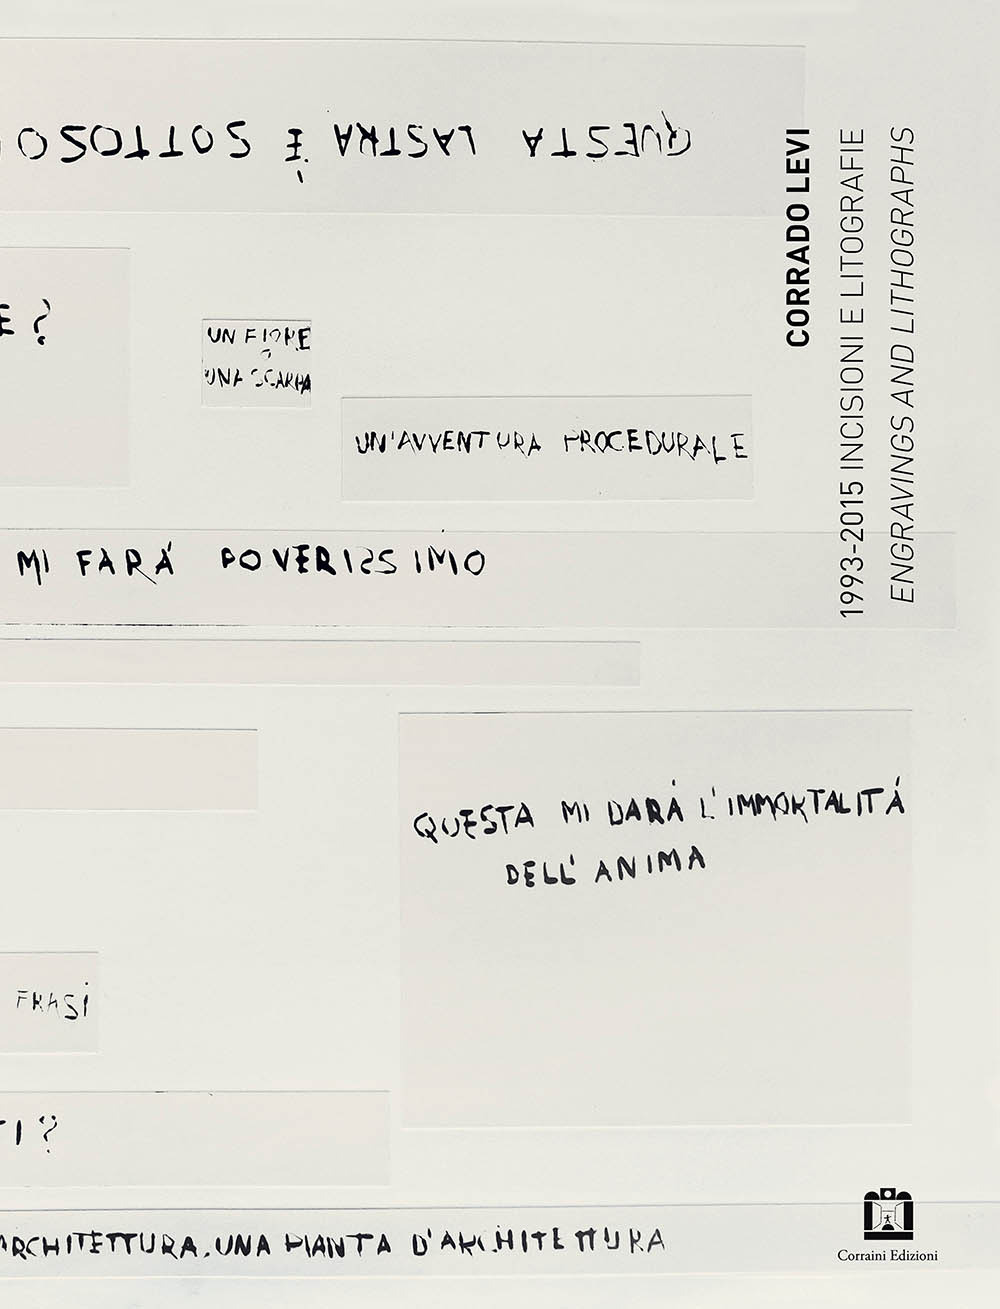 QUESTA LASTRA È SOTTOSO
CORRADO LEVI
1993-2015 INCISIONI E LITOGRAFIE
ENGRAVINGS AND LITHOGRAPHS
E?
UN FIORE
O
UNA SCARPA
UN'AVVENTURA PROCEDURALE
MI FARÁ POVERISSIMO
QUESTA MI DARÁ L'IMMORTALITÁ
DELL'ANIMA
FRASI
TI?
ARCHITETTURA, UNA PIANTA D'ARCHITETTURA
Corraini Edizioni